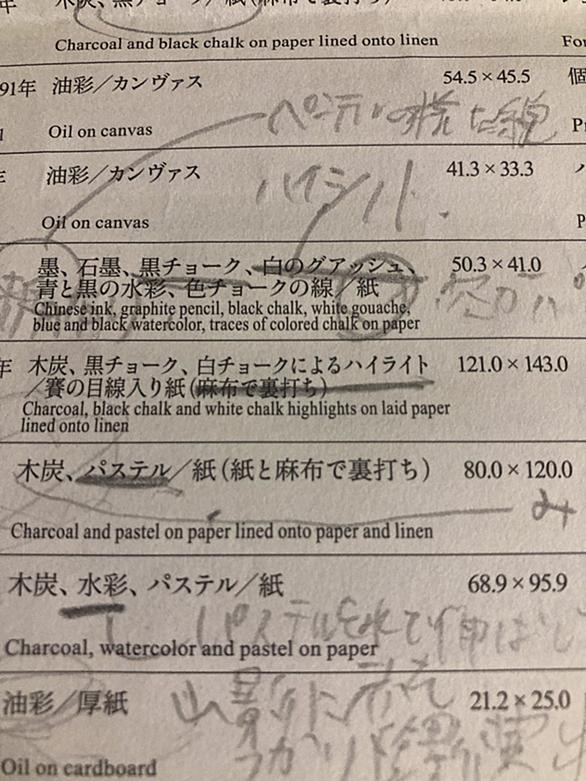 Charcoal and black chalk on paper lined onto linen
91年 油彩／カンヴァス 54.5×45.5 個
Oil on canvas
油彩／カンヴァス 41.3×33.3
ハイライト
Oil on canvas
墨、石墨、黒チョーク、白のグアッシュ、 50.3×41.0
青と黒の水彩、色チョークの線／紙
Chinese ink, graphite pencil, black chalk, white gouache,
blue and black watercolor, traces of colored chalk on paper
年 木炭、黒チョーク、白チョークによるハイライト 121.0×143.0
／賽の目線入り紙（麻布で裏打ち）
Charcoal, black chalk and white chalk highlights on laid paper
lined onto linen
木炭、パステル／紙（紙と麻布で裏打ち） 80.0×120.0
Charcoal and pastel on paper lined onto paper and linen
木炭、水彩、パステル／紙 68.9×95.9
パステルを水で伸ばし
Charcoal, watercolor and pastel on paper
油彩／厚紙 21.2×25.0
Oil on cardboard